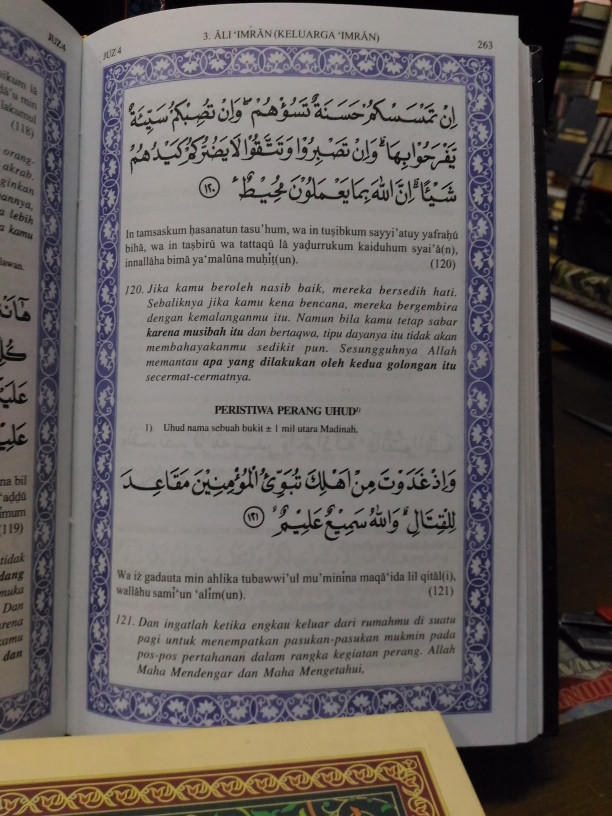 JUZ 4
3. ĀLI ‘IMRĀN (KELUARGA ‘IMRĀN)
263
اِنْ تَمْسَسْكُمْ حَسَنَةٌ تَسُؤْهُمْ ۖ وَاِنْ تُصِبْكُمْ سَيِّئَةٌ
يَّفْرَحُوْا بِهَا ۗ وَاِنْ تَصْبِرُوْا وَتَتَّقُوْا لَا يَضُرُّكُمْ كَيْدُهُمْ
شَيْـًٔا ۗ اِنَّ اللّٰهَ بِمَا يَعْمَلُوْنَ مُحِيْطٌ ۝١٢٠
In tamsaskum ḥasanatun tasu'hum, wa in tuṣibkum sayyi'atuy yafraḥū
bihā, wa in taṣbirū wa tattaqū lā yaḍurrukum kaiduhum syai'ā(n),
innallāha bimā ya‘malūna muḥiṭ(un). (120)
120. Jika kamu beroleh nasib baik, mereka bersedih hati.
Sebaliknya jika kamu kena bencana, mereka bergembira
dengan kemalanganmu itu. Namun bila kamu tetap sabar
karena musibah itu dan bertaqwa, tipu dayanya itu tidak akan
membahayakanmu sedikit pun. Sesungguhnya Allah
memantau apa yang dilakukan oleh kedua golongan itu
secermat-cermatnya.
PERISTIWA PERANG UHUD¹⁾
1) Uhud nama sebuah bukit ± 1 mil utara Madinah.
وَاِذْ غَدَوْتَ مِنْ اَهْلِكَ تُبَوِّئُ الْمُؤْمِنِيْنَ مَقَاعِدَ
لِلْقِتَالِ ۗ وَاللّٰهُ سَمِيْعٌ عَلِيْمٌ ۝١٢١
Wa iż gadauta min ahlika tubawwi'ul mu'minina maqā‘ida lil qitāl(i),
wallāhu sami‘un ‘alim(un). (121)
121. Dan ingatlah ketika engkau keluar dari rumahmu di suatu
pagi untuk menempatkan pasukan-pasukan mukmin pada
pos-pos pertahanan dalam rangka kegiatan perang. Allah
Maha Mendengar dan Maha Mengetahui,